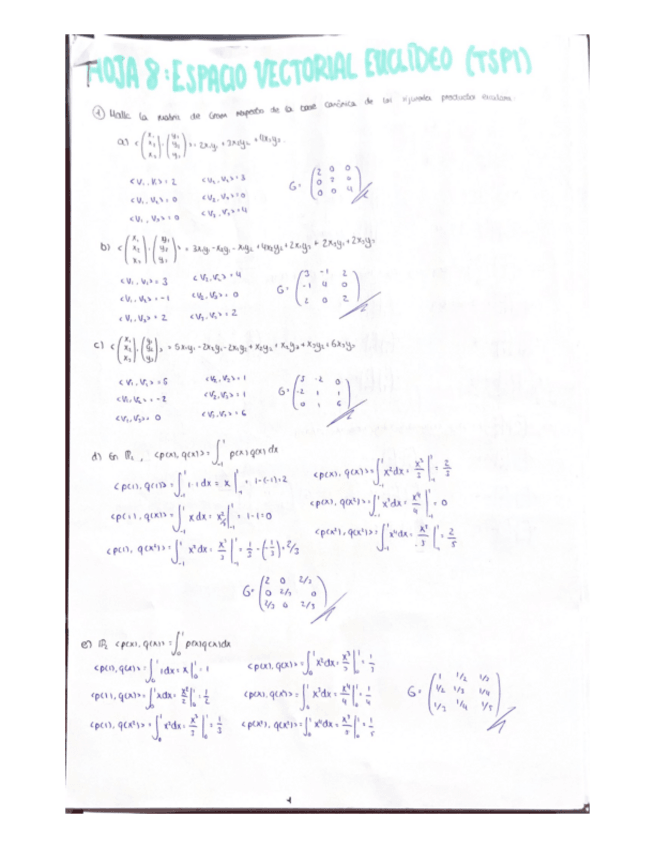 HOJA 8: ESPACIO VECTORIAL EUCLÍDEO (TSP1)
① Halla la matriz de Gram respecto de la base canónica de los siguientes productos escalares:
a) <(x₁ x₂ x₃), (y₁ y₂ y₃)> = 2x₁y₁ + 3x₂y₂ + 4x₃y₃.
<v₁, v₁> = 2   <v₂, v₂> = 3
<v₁, v₂> = 0   <v₂, v₃> = 0
<v₁, v₃> = 0   <v₃, v₃> = 4
G = (2 0 0
0 3 0
0 0 4)
b) <(x₁ x₂ x₃), (y₁ y₂ y₃)> = 3x₁y₁ - x₂y₁ - x₁y₂ + 4x₂y₂ + 2x₁y₃ + 2x₃y₁ + 2x₃y₃
<v₁, v₁> = 3   <v₂, v₂> = 4
<v₁, v₂> = -1   <v₂, v₃> = 0
<v₁, v₃> = 2   <v₃, v₃> = 2
G = (3 -1 2
-1 4 0
2 0 2)
c) <(x₁ x₂ x₃), (y₁ y₂ y₃)> = 5x₁y₁ - 2x₁y₂ - 2x₂y₁ + x₂y₂ + x₂y₃ + x₃y₂ + 6x₃y₃
<v₁, v₁> = 5   <v₂, v₂> = 1
<v₁, v₂> = -2   <v₂, v₃> = 1
<v₁, v₃> = 0   <v₃, v₃> = 6
G = (5 -2 0
-2 1 1
0 1 6)
d) En ℙ₂, <p(x), q(x)> = ∫₋₁¹ p(x) q(x) dx
<p(1), q(1)> = ∫₋₁¹ 1·1 dx = x |₋₁¹ = 1-(-1) = 2   <p(x), q(x)> = ∫₋₁¹ x² dx = x³/3 |₋₁¹ = 2/3
<p(1), q(x)> = ∫₋₁¹ x dx = x²/2 |₋₁¹ = 1-1 = 0   <p(x), q(x²)> = ∫₋₁¹ x³ dx = x⁴/4 |₋₁¹ = 0
<p(1), q(x²)> = ∫₋₁¹ x² dx = x³/3 |₋₁¹ = 1/3 - (-1/3) = 2/3   <p(x²), q(x²)> = ∫₋₁¹ x⁴ dx = |₋₁¹ = 2/5
G = (2 0 2/3
0 2/3 0
2/3 0 2/5)
e) ℙ₂ <p(x), q(x)> = ∫₀¹ p(x) q(x) dx
<p(1), q(1)> = ∫₀¹ 1 dx = x |₀¹ = 1   <p(x), q(x)> = ∫₀¹ x² dx = x³/3 |₀¹ = 1/3
<p(1), q(x)> = ∫₀¹ x dx = x²/2 |₀¹ = 1/2   <p(x), q(x²)> = ∫₀¹ x³ dx = x⁴/4 |₀¹ = 1/4
<p(1), q(x²)> = ∫₀¹ x² dx = x³/3 |₀¹ = 1/3   <p(x²), q(x²)> = ∫₀¹ x⁴ dx = |₀¹ = 1/5
G = (1 1/2 1/3
1/2 1/3 1/4
1/3 1/4 1/5)
1